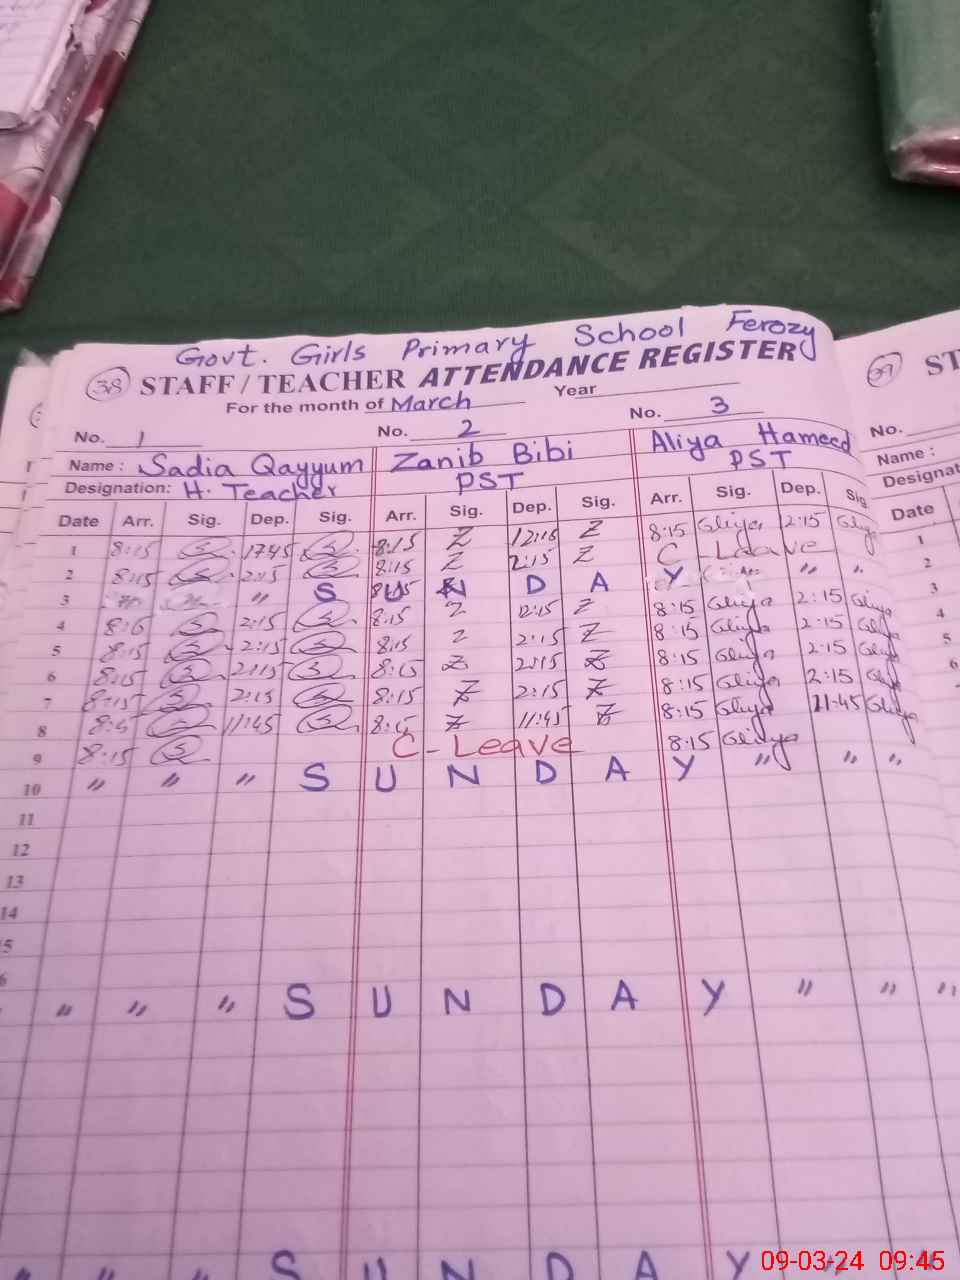 Govt. Girls Primary School Ferozy
38 STAFF / TEACHER ATTENDANCE REGISTER
For the month of March Year
No. 1 No. 2 No. 3
Name : Sadia Qayyum Zanib Bibi Aliya Hameed
Designation: H. Teacher PST PST
Date Arr. Sig. Dep. Sig. Arr. Sig. Dep. Sig. Arr. Sig. Dep. Sig
1 8:15 8:15 Z 12:15 Z 8:15 Aliya 2:15
2 8:15 2:15 8:15 Z 2:15 Z C - Leave
3 " S U N D A Y " "
4 2:15 8:15 Z Z 8:15 Aliya 2:15 Aliya
5 8:15 2:15 8:15 Z 2:15 Z 8:15 Aliya 2:15 Aliya
6 8:15 2:15 8:15 Z 2:15 Z 8:15 Aliya 2:15 Aliya
7 8:15 2:15 8:15 Z 2:15 Z 8:15 Aliya 2:15
8 11:45 Z 11:45 Z 8:15 Aliya 11:45 Aliya
9 8:15 C - Leave 8:15 Aliya
10 " " " S U N D A Y " " "
11
12
13
14
" " " S U N D A Y " " "
" " " S U N D A Y "
39 ST
No.
Name :
Designat
Date
1
2
3
4
5
6
09-03-24 09:45